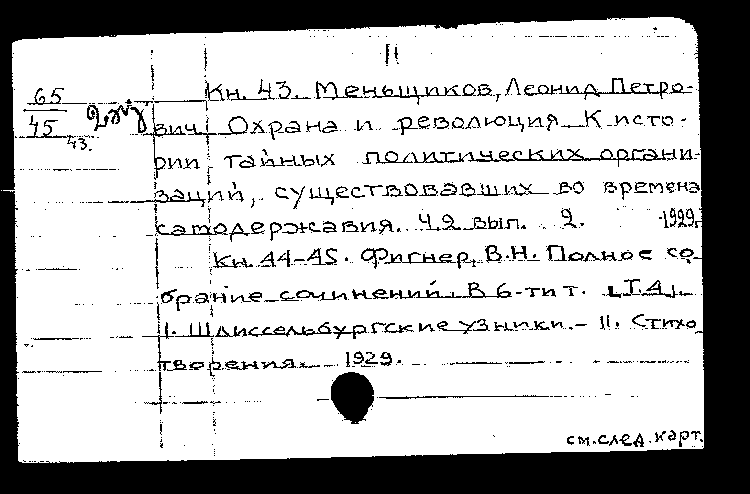 11
65
45
43.
Кн. 43. Меньщиков, Леонид Петро-
вич. Охрана и революция. К исто-
рии тайных политических органи-
заций, существовавших во времена
самодержавия. Ч.2 вып. 2. 1929.
Кн. 44-45. Фигнер, В.Н. Полное со
брание сочинений. В 6-ти т. [Т.4].
I. Шлиссельбургские узники. - II. Стихо
творения. 1929.
см. след. карт.